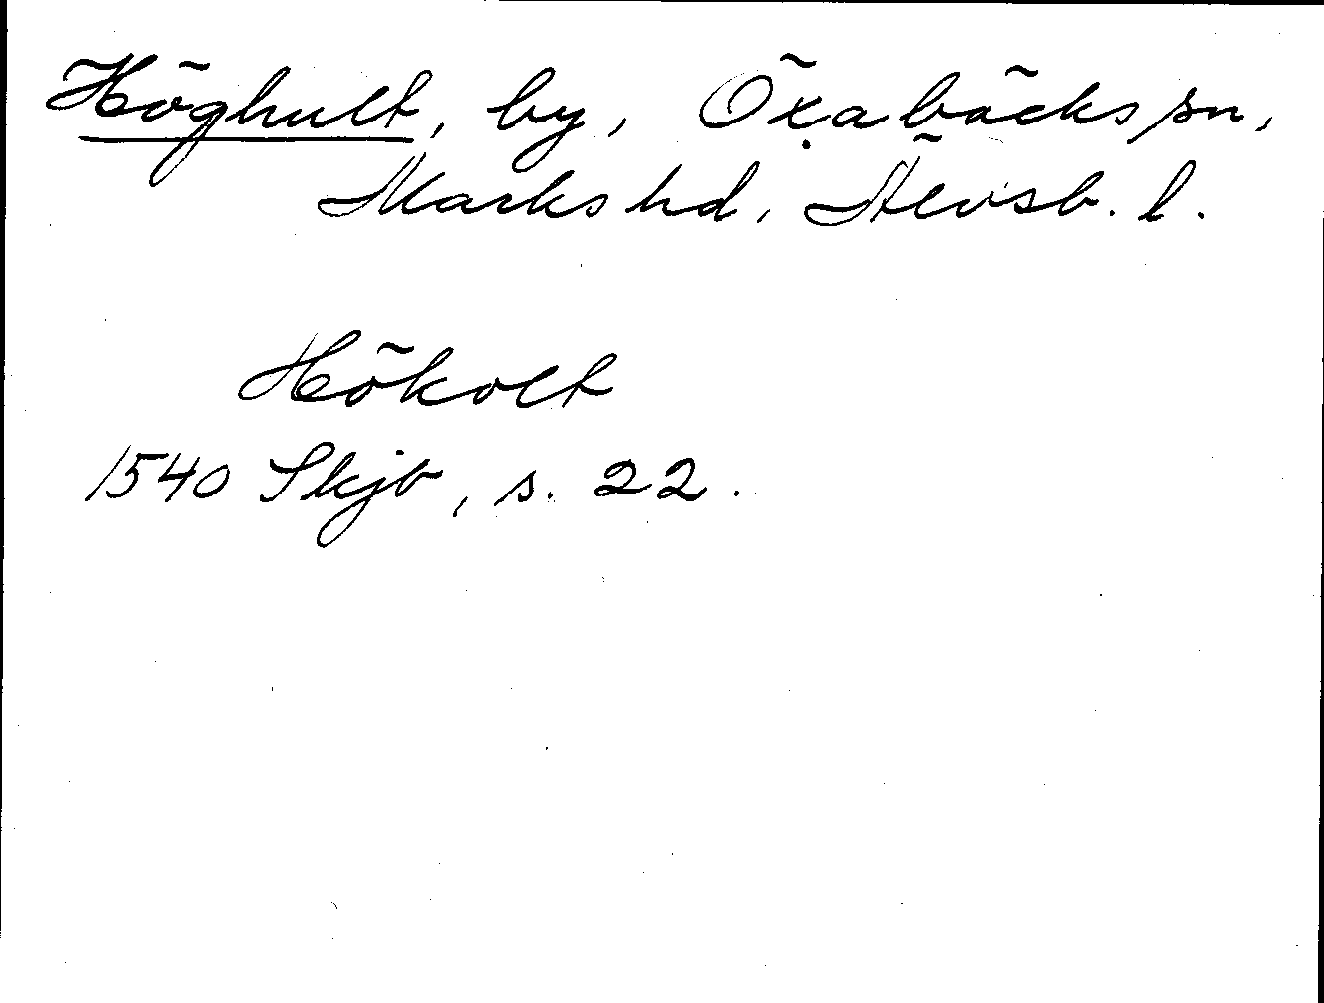 Höghult, by, Öxabäcks sn,
Marks hd, Älvsb. l.
Hökolt
1540 Skjb, s. 22.